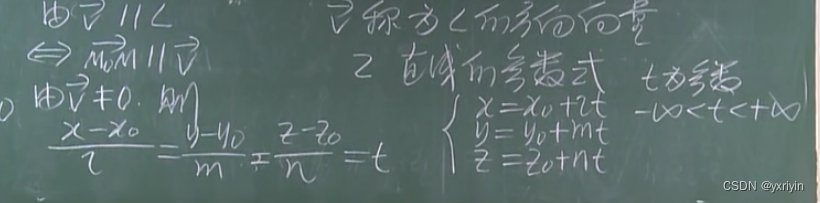 由 v⃗ // L
⟺ M₀M⃗ // v⃗
由 v⃗ ≠ 0. 则
(x-x₀)/l = (y-y₀)/m = (z-z₀)/n = t
v⃗ 称为 L 的方向向量
2 直线的参数式 t为参数
{ x=x₀+lt -∞<t<+∞
y=y₀+mt
z=z₀+nt
CSDN @yxriyin